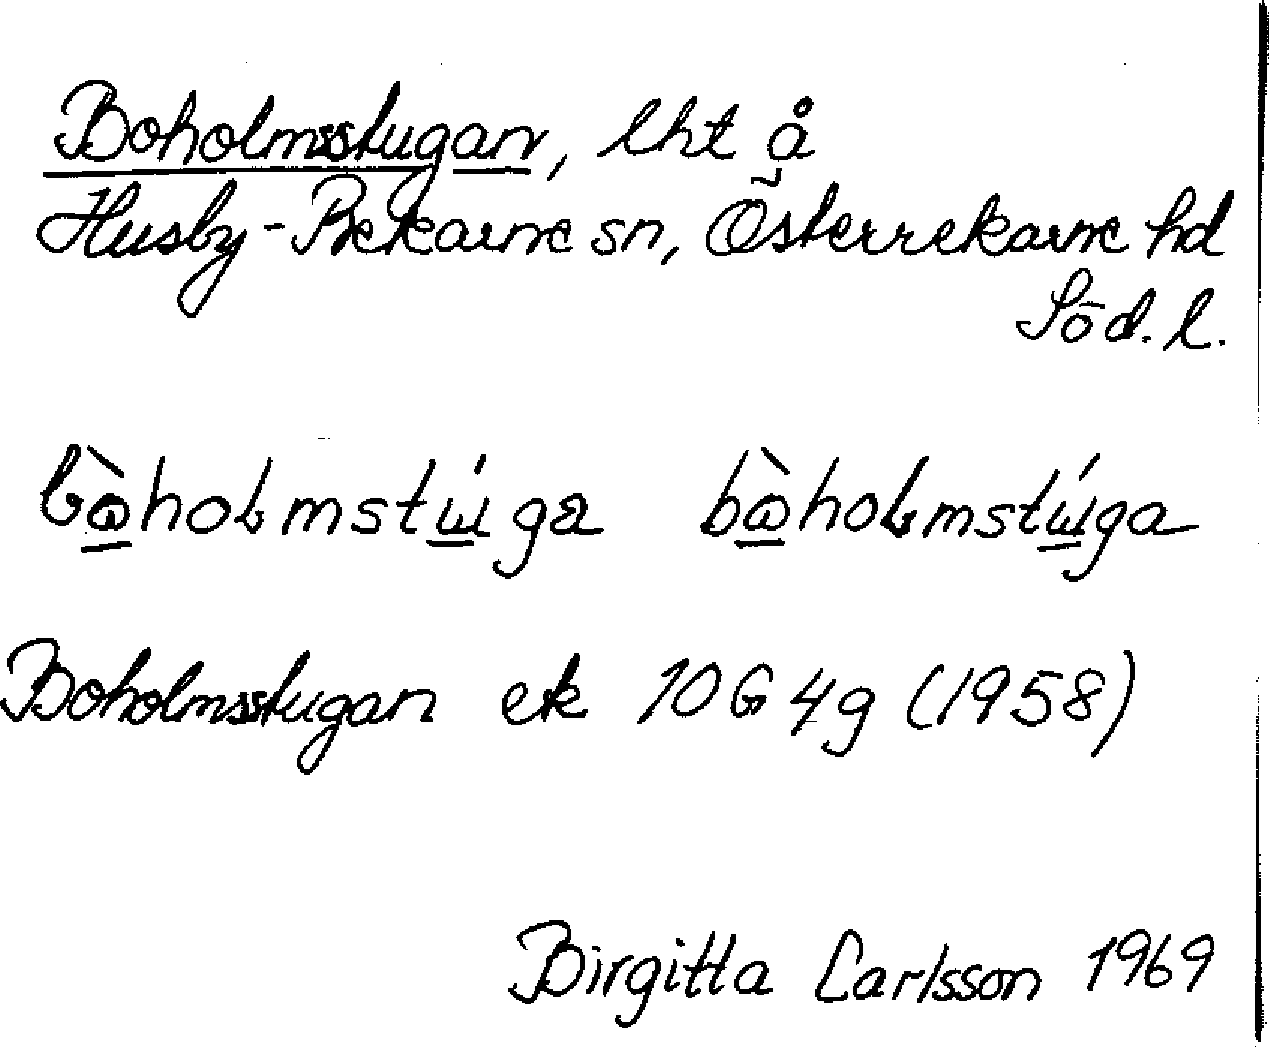 Boholmsstugan, lht å
Husby-Rekarne sn, Österrekarne hd
Söd. l.
bòholmstúga bòholmstúga
Boholmsstugan ek 10G 4g (1958)
Birgitta Carlsson 1969